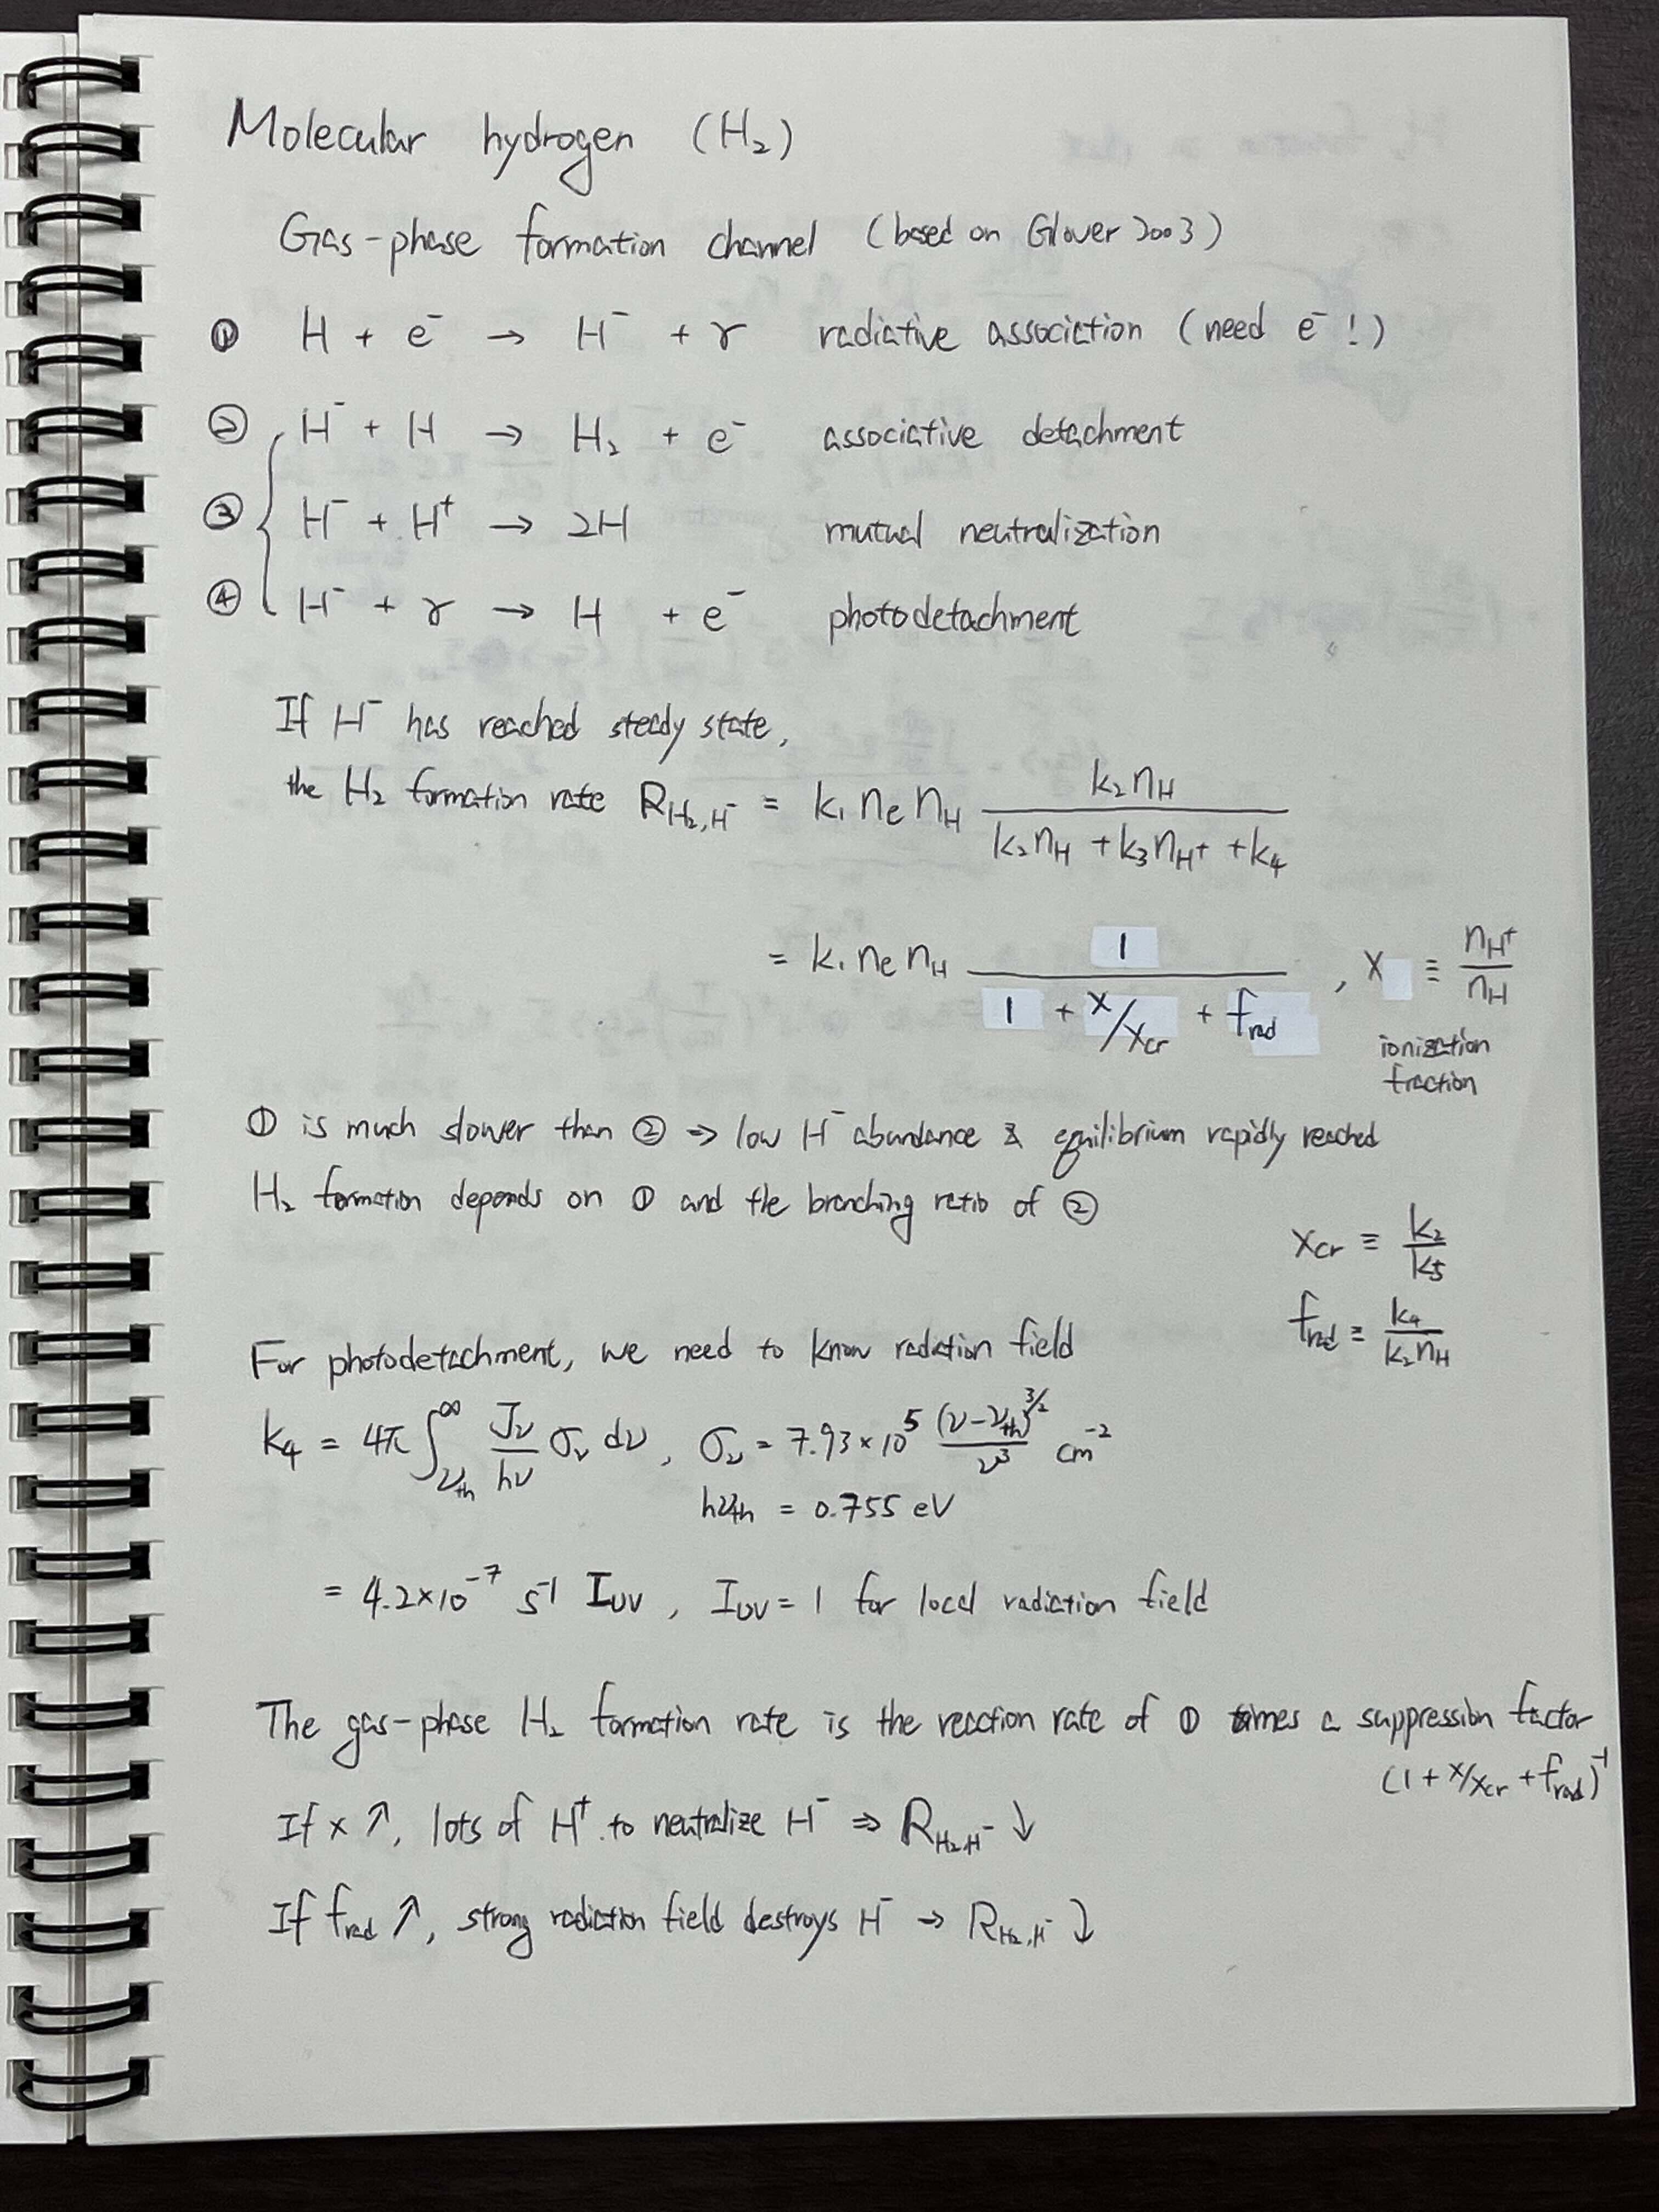 Molecular hydrogen (H₂)
Gas-phase formation channel (based on Glover 2003)
① H + e⁻ → H⁻ + γ radiative association (need e⁻ !)
② H⁻ + H → H₂ + e⁻ associative detachment
③ H⁻ + H⁺ → 2H mutual neutralization
④ H⁻ + γ → H + e⁻ photodetachment
If H⁻ has reached steady state,
the H₂ formation rate R_{H₂,H⁻} = k₁ n_e n_H \frac{k₂ n_H}{k₂ n_H + k₃ n_{H⁺} + k₄}
= k₁ n_e n_H \frac{1}{1 + x/x_{cr} + f_{rad}} , x ≡ \frac{n_{H⁺}}{n_H}
ionization
fraction
① is much slower than ② ⇒ low H⁻ abundance & equilibrium rapidly reached
H₂ formation depends on ① and the branching ratio of ②
x_{cr} ≡ \frac{k₂}{k₃}
f_{rad} ≡ \frac{k₄}{k₂ n_H}
For photodetachment, we need to know radiation field
k₄ = 4π ∫_{ν_{th}}^{∞} \frac{J_ν}{hν} σ_ν dν , σ_ν = 7.93×10⁵ \frac{(ν-ν_{th})^{3/2}}{ν³} cm⁻²
hν_{th} = 0.755 eV
= 4.2×10⁻⁷ s⁻¹ I_{UV} , I_{UV} = 1 for local radiation field
The gas-phase H₂ formation rate is the reaction rate of ① times a suppression factor
(1 + x/x_{cr} + f_{rad})⁻¹
If x ↑, lots of H⁺ to neutralize H⁻ ⇒ R_{H₂,H⁻} ↓
If f_{rad} ↑, strong radiation field destroys H⁻ → R_{H₂,H⁻} ↓